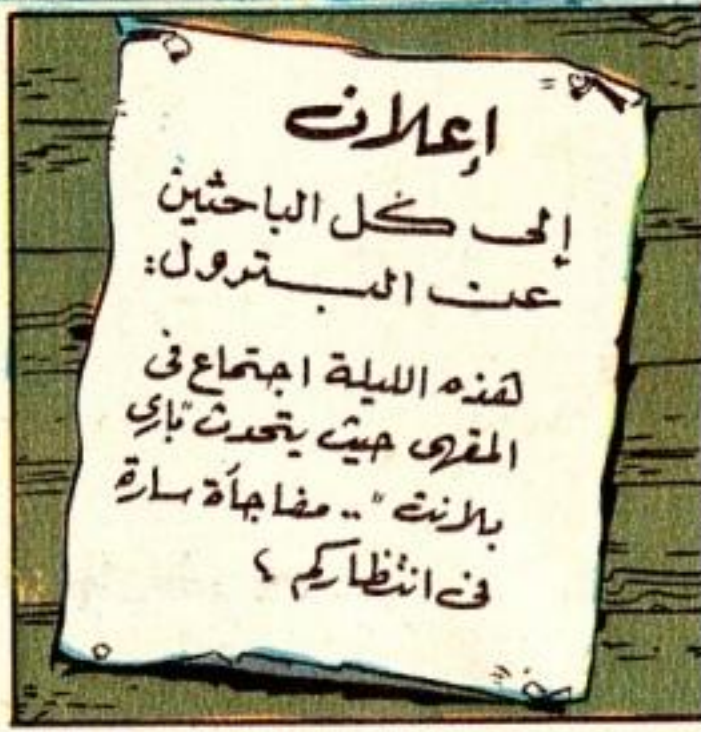 إعلان
إلى كل الباحثين
عن البترول:
هذه الليلة اجتماع فى
المقهى حيث يتحدث "بارى
بلانت".. مفاجأة سارة
فى انتظاركم !